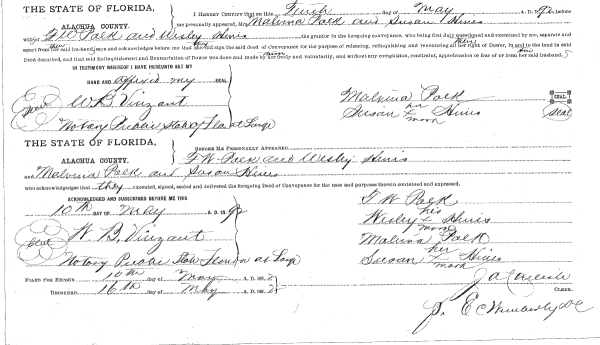 THE STATE OF FLORIDA, I HEREBY CERTIFY that on this Tenth day of May A. D. 1892 before
ALACHUA COUNTY. me personally appeared, Mrs Malvina Polk and Susan Hines
wife of F W Polk and Wesley Hines the grantor in the foregoing conveyance, who being first duly and examined by me, separate and
apart from her said husband, says and acknowledges before me that they did sign the said deed of Conveyance for the purpose of releasing, relinquishing and renouncing all her right of Dower, in and to the land in said
Deed described, and that said Relinquishment and Renunciation of Dower was done and made by her freely and voluntarily, and without any compulsion, constraint, apprehension or fear of or from her said husband.
IN TESTIMONY WHEREOF I HAVE HEREUNTO SET MY
HAND AND affixed my SEAL
Seal W. B. Vinzant Malvina Polk SEAL
her
Susan X Hines Seal
mark
Notary Public State of Fla at Large
THE STATE OF FLORIDA,
ALACHUA COUNTY. BEFORE ME PERSONALLY APPEARED F W Polk and Wesley Hines
and Malvina Polk and Susan Hines
who acknowledges that they executed, signed, sealed and delivered the foregoing Deed of Conveyance for the uses and purposes therein contained and expressed,
ACKNOWLEDGED AND SUBSCRIBED BEFORE ME THIS
10th DAY OF May A. D. 1892
F W Polk
his
Wesley X Hines
mark
Seal W. B. Vinzant Malvina Polk
her
Susan X Hines
mark
Notary Public State Florida at Large
FILED FOR RECORD 10th day of May A. D. 1892
RECORDED 16th day of May A. D. 1892 CLERK.
E C Wimberly D C